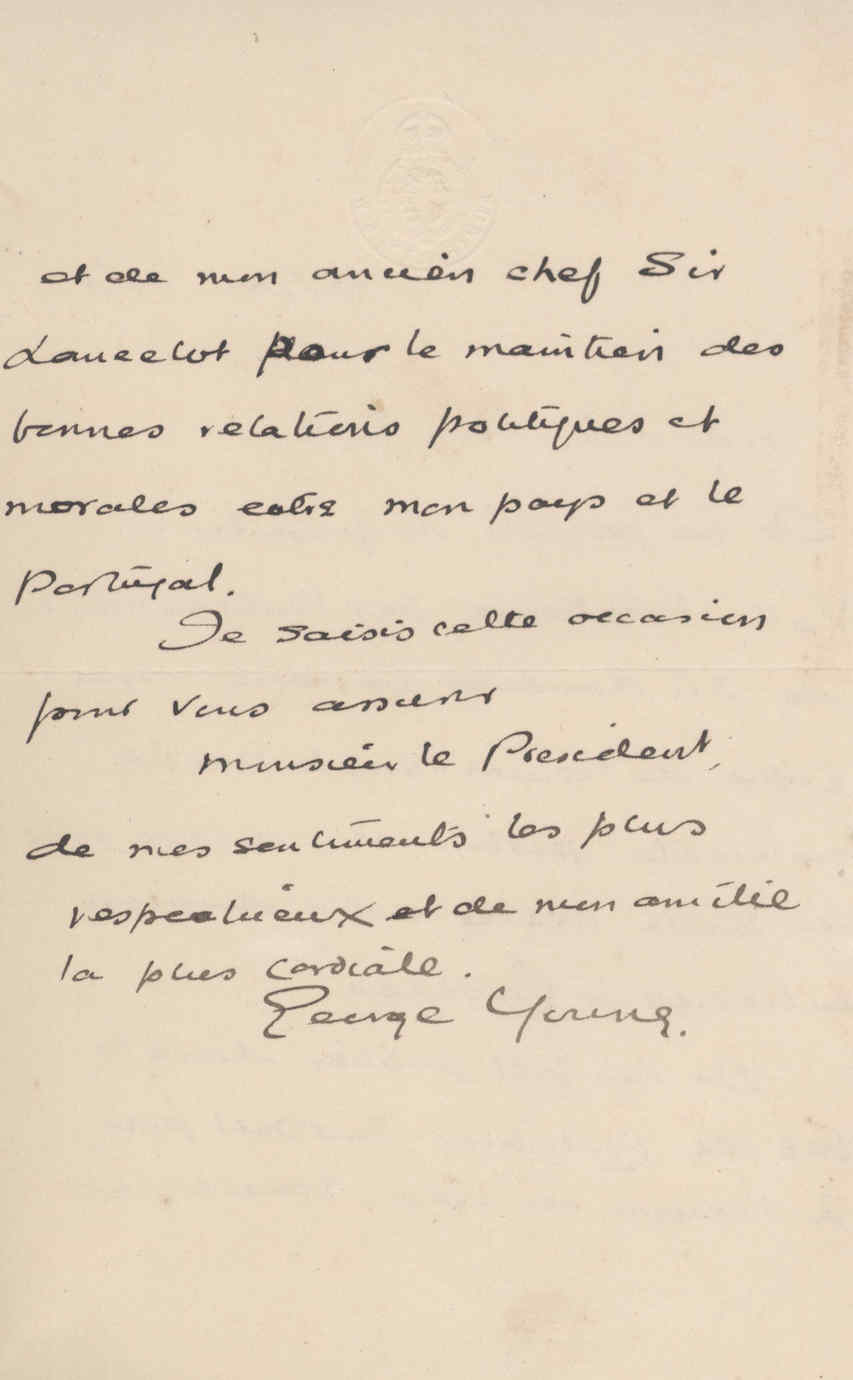 et de mon ancien chef Sir
Lancelot pour le maintien des
bonnes relations politiques et
morales entre mon pays et le
Portugal.
Je saisis cette occasion
pour vous assurer
Monsieur le President,
de mes sentiments les plus
respectueux et de mon amitié
la plus cordiale.
George Young.